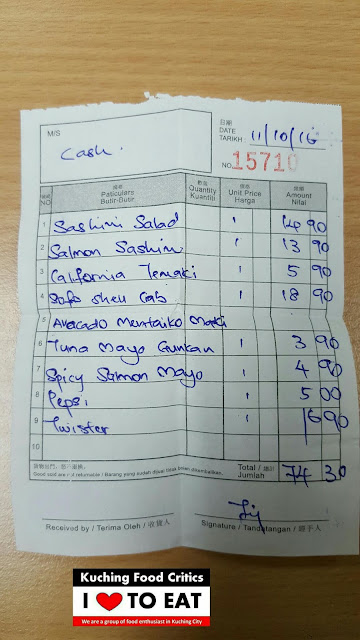 M/S
Cash.
日期
DATE
TARIKH 11/10/16
NO. 15710
NO
Paticulars
Butir-Butir
數量
Quantity
Kuantiti
Unit Price
Harga
Amount
Nilai
1 Sashimi Salad 1 14 90
2 Salmon Sashimi 1 13 90
3 California Temaki 1 5 90
4 Soft Shell Crab 1 18 90
5 Avocado Mentaiko Maki
6 Tuna Mayo Gunkan 1 3 90
7 Spicy Salmon Mayo 1 4 90
8 Pepsi 1 5 00
9 Twister 1 6 90
10
Good sold are not returnable / Barang yang sudah dijual tidak boleh dikembalikan.
Total / 總計
Jumlah
74 30
Received by / Terima Oleh / 收貨人
Signature / Tandatangan / 經手人
Kuching Food Critics
I ❤ TO EAT
We are a group of food enthusiast in Kuching City